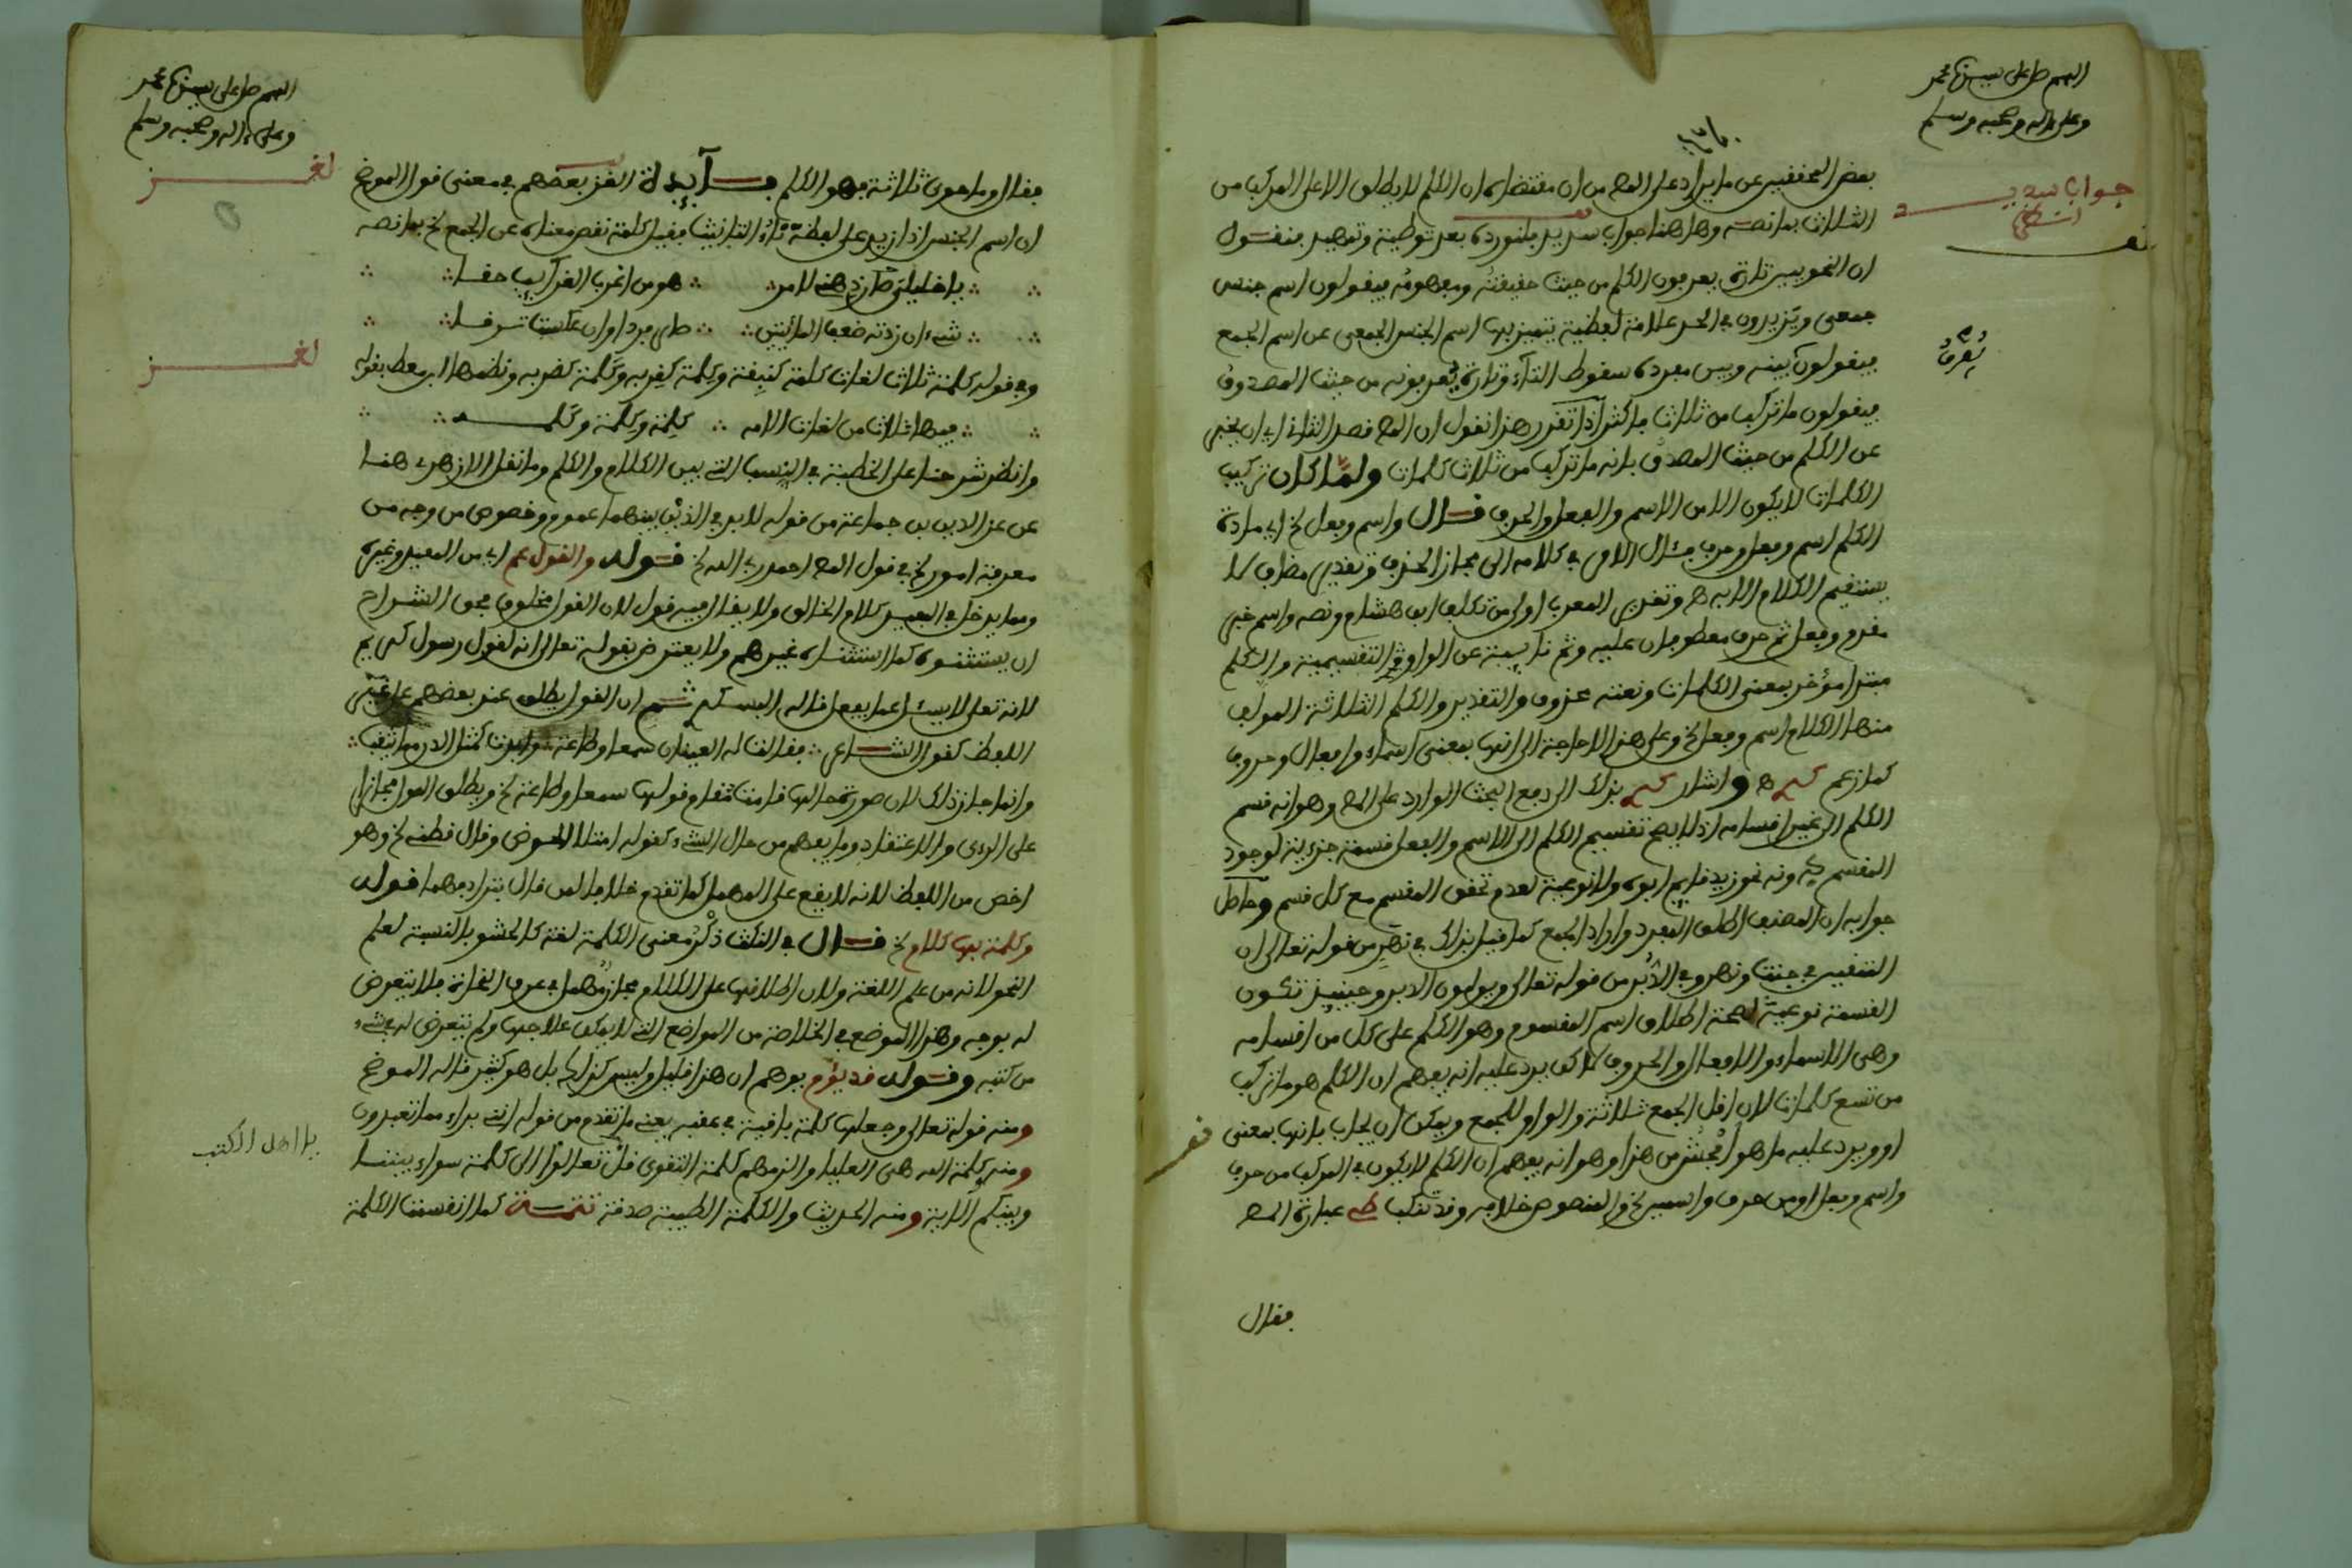 اللهم صل على سيدنا محمد
وعلى ءاله وصحبه وسلم
جواب سديد
بعض المحققين عن ما يراد على المص من ان مقتضاه ان الكلم لا يطلق الا على المركب من
الثلاث بما نصه وها هنا جواب سديد فلنورده بعد توطية وتمهيد فنقول
ان النحويين تارة يعرفون الكلم من حيث حقيقته ومفهومه فيقولون اسم جنس
جمعي ويزيدون في الحد علامة لفظية يتميز بها اسم الجنس الجمعي عن اسم الجمع
فيقولون بينه وبين مفرده سقوط التاء وتارة يعرفونه من حيث المصدوق
فيقولون ما تركب من ثلاث فاكثر اذا تقرر هذا نقول ان المص قصد الثاني اي ان يخبر
عن الكلم من حيث المصدق بانه ما تركب من ثلاث كلمات ولما كان تركيب
الكلمات لا يكون الا من الاسم والفعل والحرف قال واسم وفعل الخ اي مادة
الكلم اسم وفعل وحرف مثال الامر في كلامه الى مجاز الحذف وتقدير مضاف لا
يستقيم الكلام الا به ه وتقرير المعرب اولى من تكلف ابن هشام ونصه واسم خبر
مقدم وفعل ثم حرف معطوفان عليه وثم نائبة عن الواو التقسيمية والكلم
مبتدا مؤخر بمعنى الكلمات ونعته محذوف والتقدير والكلم الثلاثة المولف
منها الكلام اسم وفعل الخ وعلى هذا لا حاجة الى انها بمعنى اسماء وافعال وحروف
كما زعم ه واشار بذلك الى دفع البحث الوارد على المص وهو انه قسم
الكلم الى غير اقسامه اذ لا يصح تقسيم الكلم الى الاسم والفعل قسمة جزءية لوجود
المقسم دونه نحو زيد قايم ابوه ولا نوعية لعدم تحقق المقسم مع كل قسم وحاصل
جوابه ان المصنف اطلق المفرد واراد الجمع كما قيل بذلك في نهر من قوله تعالى ان
المتقين في جنت ونهر وفي الدبر من قوله تعالى ويولون الدبر وحينيذ تكون
القسمة نوعية لصحة اطلاق اسم المقسوم وهو الكلم على كل من اقسامه
وهي الاسماء والافعال والحروف لاكن يرد عليه انه يوهم ان الكلم هو ما تركب
من تسع كلمات لان اقل الجمع ثلاثة والواو للجمع ويمكن ان يجاب بانها بمعنى
او ويرد عليه ما هو افحش من هذا وهو انه يوهم ان الكلم لا يكون في المركب من حرف
واسم وفعل او من حرف واسمين الخ والمنصوص خلافه وقد تنكب عبارة المص
فقال
اللهم صل على سيدنا محمد
وعلى ءاله وصحبه وسلم
لغز
فقال وما حوى ثلاثة فهو الكلم فائدة الغز بعضهم في معنى قول الموضح
ان اسم الجنس اذا زيد على لفظه تاء التانيث فقيل كلمة نقص معناه عن الجمع الخ بما نصه
هو من اغرب الغرائب حقا
شيء ان زدته
لغز
وفي قوله كلمة ثلاث لغات كلمة كنبقة وكلمة كقربة وكلمة كضربة ونظمها ابن معط بقوله
فيها ثلاث من لغات الامه كلمة وكلمة وكلمه
وانظر شرحنا على الخطبة في النسب التي بين الكلام والكلم وما نقل الازهري هنا
عن عز الدين بن جماعة من قوله لا بد في الذين بينهما عموم وخصوص من وجه من
معرفة امور الخ في قول المص احمد ربي الله الخ قوله والقول عم اي من المفيد وغيره
ومما يدخل في كلام الخالق ولا يقال فيه قول لان القول مخلوق فحق الشراح
ان يستثنوه كما استثناه غيرهم ولا يعترض بقوله تعالى انه لقول رسول كريم
لانه تعالى لا يسئل عما يفعل قاله ثم ان القول يطلق عند بعضهم على غير
اللفظ كقول الشاعر فقالت له العينان سمعا وطاعة كمثل الدر مما تثقب
وانما جاز ذلك لان صورة حالها قامت مقام قولها سمعا وطاعة الخ ويطلق القول مجازا
على الراي والاعتقاد وما يفهم من حال الشيء كقوله امتلا الحوض وقال قطني الخ وهو
اخص من اللفظ لانه لا يقع على المهمل كما تقدم خلافا لمن قال بترادفهما قوله
وكلمة بها كلام الخ قال في النكت ذكر معنى الكلمة لغة كالحشو بالنسبة لعلم
النحو لانه من علم اللغة ولان اطلاقها على الكلام مجاز مهمل في عرف النحاة فلا يتعرض
له بوجه وهذا الموضع في الخلاصة من المواضع التي لا يمكن علاجها ولم يتعرض له في شيء
من كتبه وقوله قد يؤم يوهم ان هذا قليل وليس كذلك بل هو كثير قاله الموضح
ومنه قوله تعالى وجعلها كلمة باقية في عقبه يعني ما تقدم من قوله انني براء مما تعبدون
يا اهل الكتب
ومنه كلمة الله هي العليا والزمهم كلمة التقوى قل تعالوا الى كلمة سواء بيننا
وبينكم الاية ومنه الحديث والكلمة الطيبة صدقة تتمة كما انقسمت الكلمة